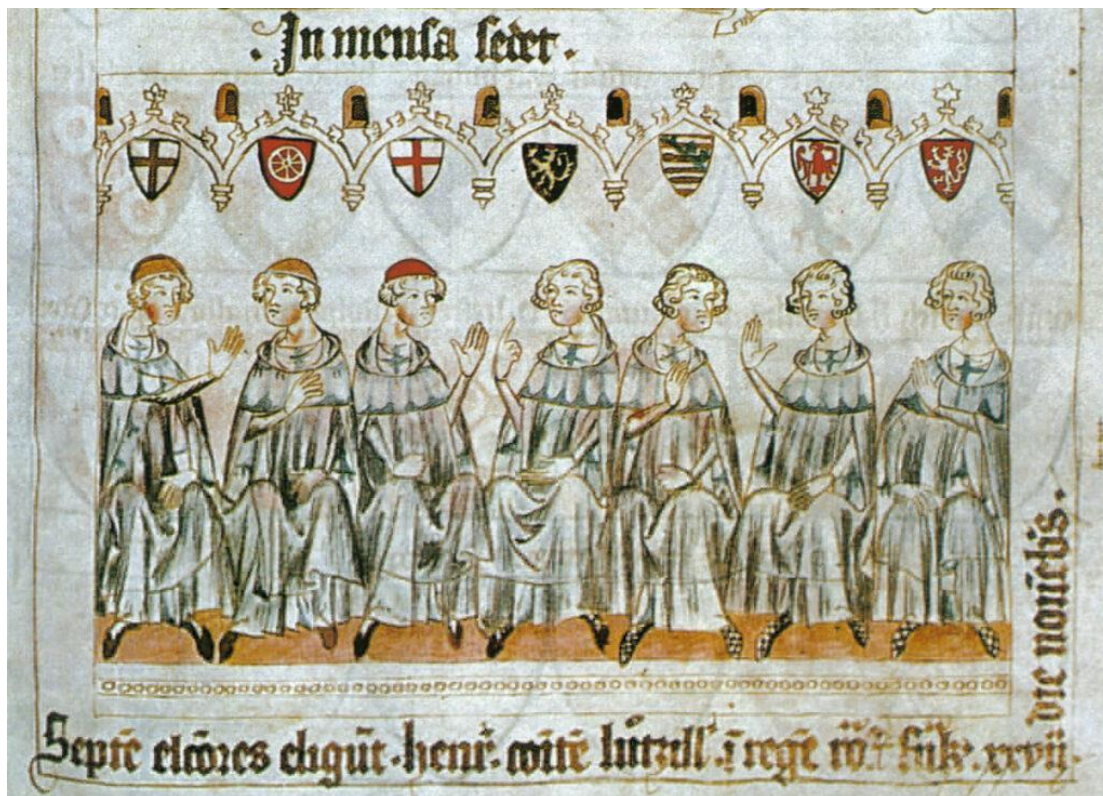 · In mensa sedet ·
Septē elcōres eligūt · henr̄ · comitē lutzill' ī regē rō · frāk · xxvii ·
die nouēb's ·